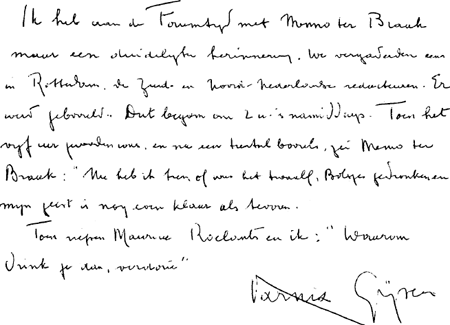 Ik heb aan de Forumtijd met Menno ter Braak
maar een duidelijke herinnering. We vergaderden eens
in Rotterdam, de Zuid- en Noord-Nederlandse redacteuren. Er
werd geborreld. Dat begon om 2 u. 's namiddags. Toen het
vijf uur geworden was, en na een tiental borrels, zei Menno ter
Braak: "Nu heb ik tien of was het twaalf, Bolsjes gedronken en
mijn geest is nog even klaar als tevoren.
Toen riepen Maurice Roelants en ik: "Waarom
drink je dan, verdorie"
Marnix Gijsen